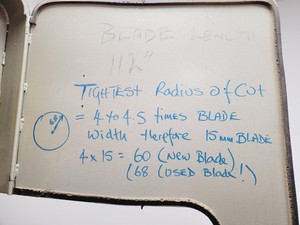 BLADE LENGTH
112"
TIGHTEST Radius of Cut
= 4 to 4.5 times BLADE
Width therefore 15mm BLADE
4 x 15 = 60 (New Blade)
(68 (USED Blade!)
68